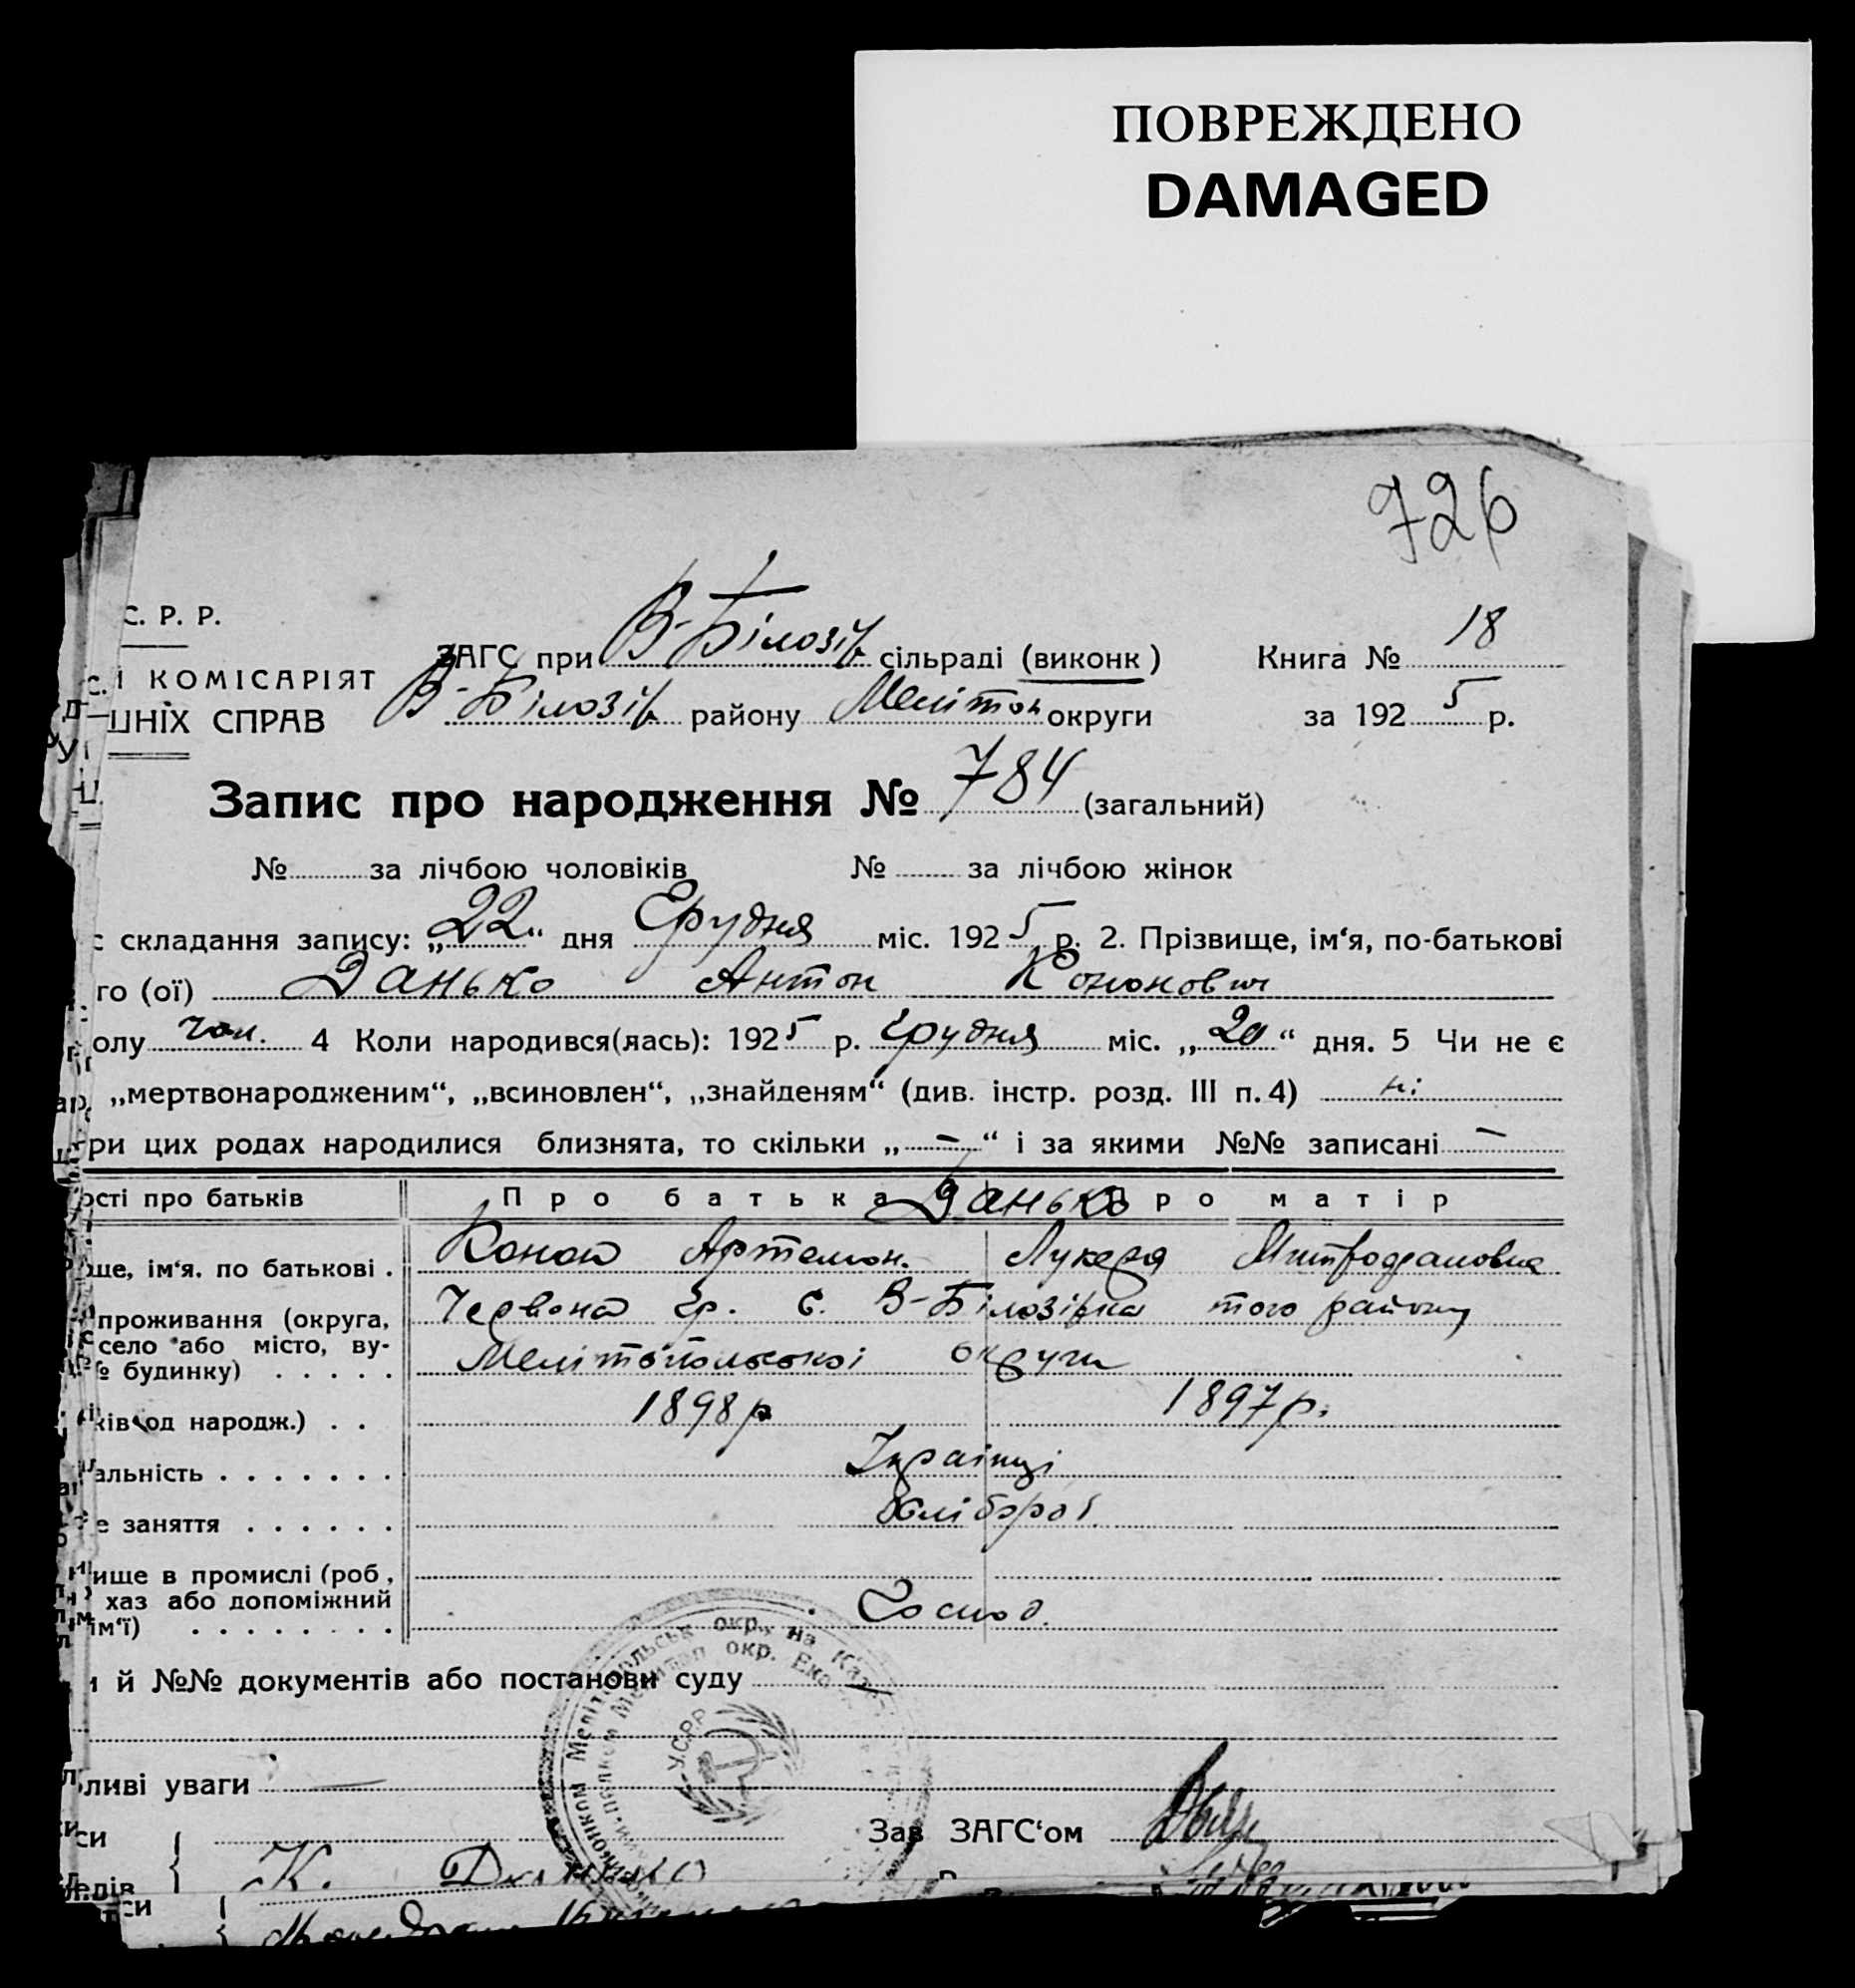 ПОВРЕЖДЕНО
DAMAGED
726
С. Р. Р.
ЗАГС при В-Білозір. сільраді (виконк) Книга № 18
КОМІСАРІЯТ
В-Білозір. району Мелітоп округи за 1925 р.
ШНІХ СПРАВ
Запис про народження № 784 (загальний)
№ за лічбою чоловіків № за лічбою жінок
складання запису: „22“ дня Грудня міс. 1925 р. 2. Прізвище, ім‘я, по-батькові
го (ої) Данько Антон Кононович
олу чол. 4 Коли народився(лась): 1925 р. Грудня міс. „20“ дня. 5 Чи не є
„мертвонародженим“, „всиновлен“, „знайденям“ (див. інстр. розд. III п. 4) ні
ри цих родах народилися близнята, то скільки „—“ і за якими №№ записані —
ості про батьків Про батька Данько ро матір
ще, ім‘я, по батькові . Конон Артемон. Лукеря Митрофановна
проживання (округа, село або місто, ву- № будинку) . . . . . Червона гр. с. В-Білозірка того району
Мелітопольської округи
ків од народж.) . . 1898 р 1897 р.
альність . . . . . . . Українці
е заняття . . . . . . Хлібороб.
ище в промислі (роб,
хаз або допоміжний
ім‘ї) . . . . . . . . Господ.
й №№ документів або постанови суду —
ливі уваги —
У.С.Р.Р.
Зав ЗАГС‘ом
си
К. Данько